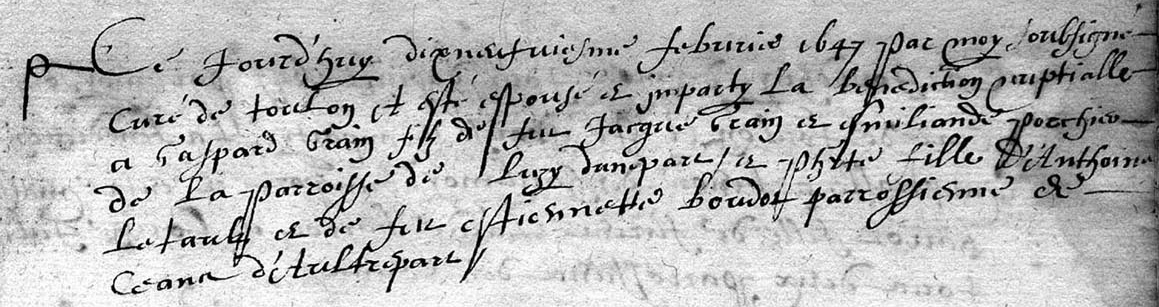 Ce Jourd'huy dixneufviesme febvrier 1647 par moy soubsigné
Curé de toulon et esté espousé et imparty La benediction nuptialle
a Gaspard Grain filz de feu Jacque Grain et Emiliande porchier
de La parroisse de Luzy dunepart / et phlte fille d'Anthoine
Letault et de feu estiennette boudot parrossienne de
Ceans d'Aultrepart